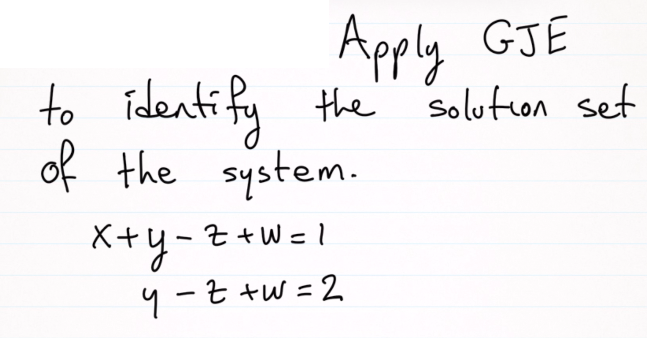 Apply GJE
to identify the solution set
of the system.
x+y-z+w=1
y-z+w=2